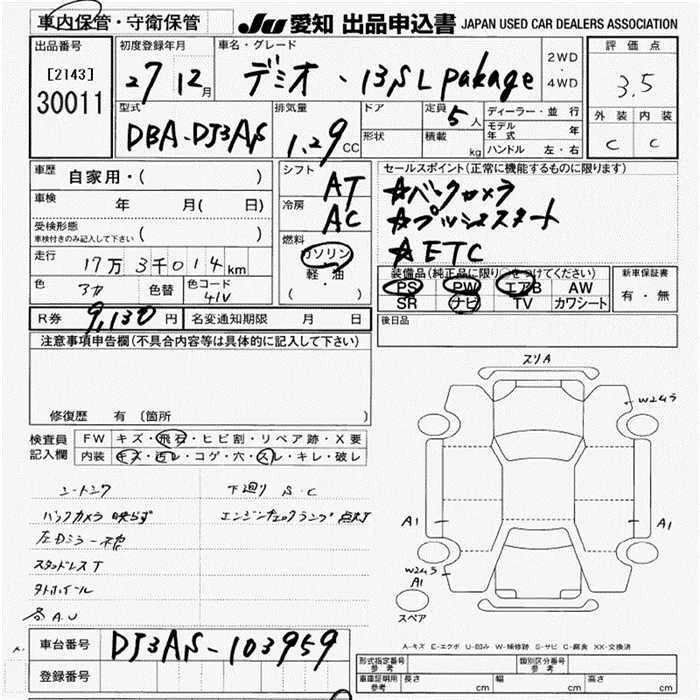 車内保管・守衛保管
JU 愛知 出品申込書 JAPAN USED CAR DEALERS ASSOCIATION
出品番号
[2143]
30011
初度登録年月
27 12月
車名・グレード
デミオ・13S L pakage
2WD
・
4WD
評価点
3.5
外装 内装
C C
型式
DBA-DJ3AS
排気量
1.29 CC
ドア
形状
定員 5人
積載 kg
ディーラー・並行
モデル年式 年
ハンドル 左・右
車歴 自家用・( )
車検 年 月( 日)
受検形態
車検付きのみ記入して下さい ( )
走行 17万3千014km
色 アカ 色替 色コード 41V
R券 9,130円 名変通知期限 月 日
シフト AT
冷房 AC
燃料
ガソリン
軽・油
( ・ )
セールスポイント(正常に機能するものに限ります)
☆バックカメラ
☆プッシュスタート
☆ETC
装備品(純正品に限り○をつけてください)
PS PW エアB AW
SR ナビ TV カワシート
新車保証書
有・無
後日品
注意事項申告欄(不具合内容等は具体的に記入して下さい)
修復歴 有 〔箇所 〕
検査員記入欄
FW キズ・飛石・ヒビ割・リペア跡・X要
内装 キズ・汚レ・コゲ・穴・スレ・キレ・破レ
シートシワ
下廻り S.C
バックカメラ 映らず
エンジンチェックランプ 点灯
左Dミラー不良
スタッドレスT
外ホイール
各A.U
スリA
W2キズ
A1
A1
W2キズ
A1
スペア
A-キズ E-エクボ U-凹み W-補修跡 S-サビ C-腐食 XX-交換済
車台番号 DJ3AS-103959
登録番号
形式指定番号 参考
類別区分番号 参考
車庫証明用 参考 長さ cm 幅 cm 高さ cm